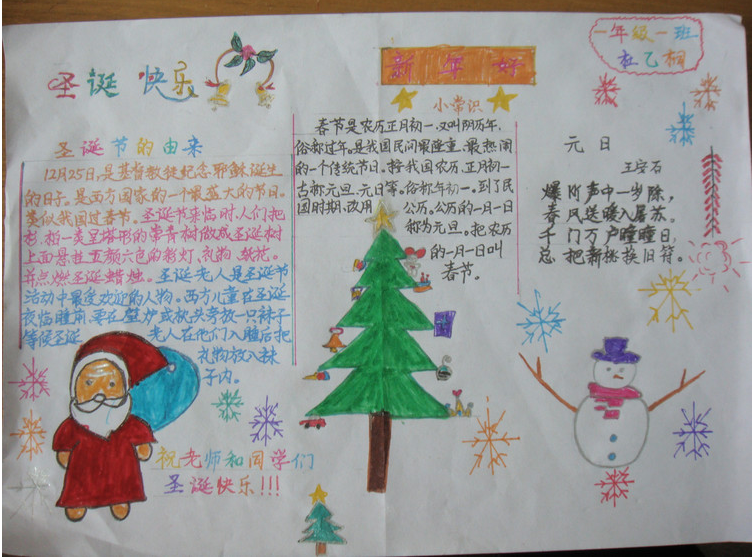 圣诞快乐
新年好
一年级一班
杜乙桐
圣诞节的由来
12月25日,是基督教徒纪念耶稣诞生
的日子。是西方国家的一个最盛大的节日。
类似我国过春节。圣诞节来临时,人们把
杉、柏一类呈塔形的常青树做成圣诞树
上面悬挂五颜六色的彩灯、礼物、纸花。
并点燃圣诞蜡烛。圣诞老人是圣诞节
活动中最受欢迎的人物。西方儿童在圣诞
夜临睡前,要在壁炉或枕头旁放一只袜子
等候圣诞老人在他们入睡后把
礼物放入袜
子内。
祝老师和同学们
圣诞快乐!!!
小常识
春节是农历正月初一,又叫阴历年,
俗称过年。是我国民间最隆重、最热闹
的一个传统节日。按我国农历,正月初一
古称元旦、元日等。俗称年初一。到了民
国时期,改用公历。公历的一月一日
称为元旦。把农历
的一月一日叫
春节。
元日
王安石
爆竹声中一岁除,
春风送暖入屠苏。
千门万户曈曈日,
总把新桃换旧符。